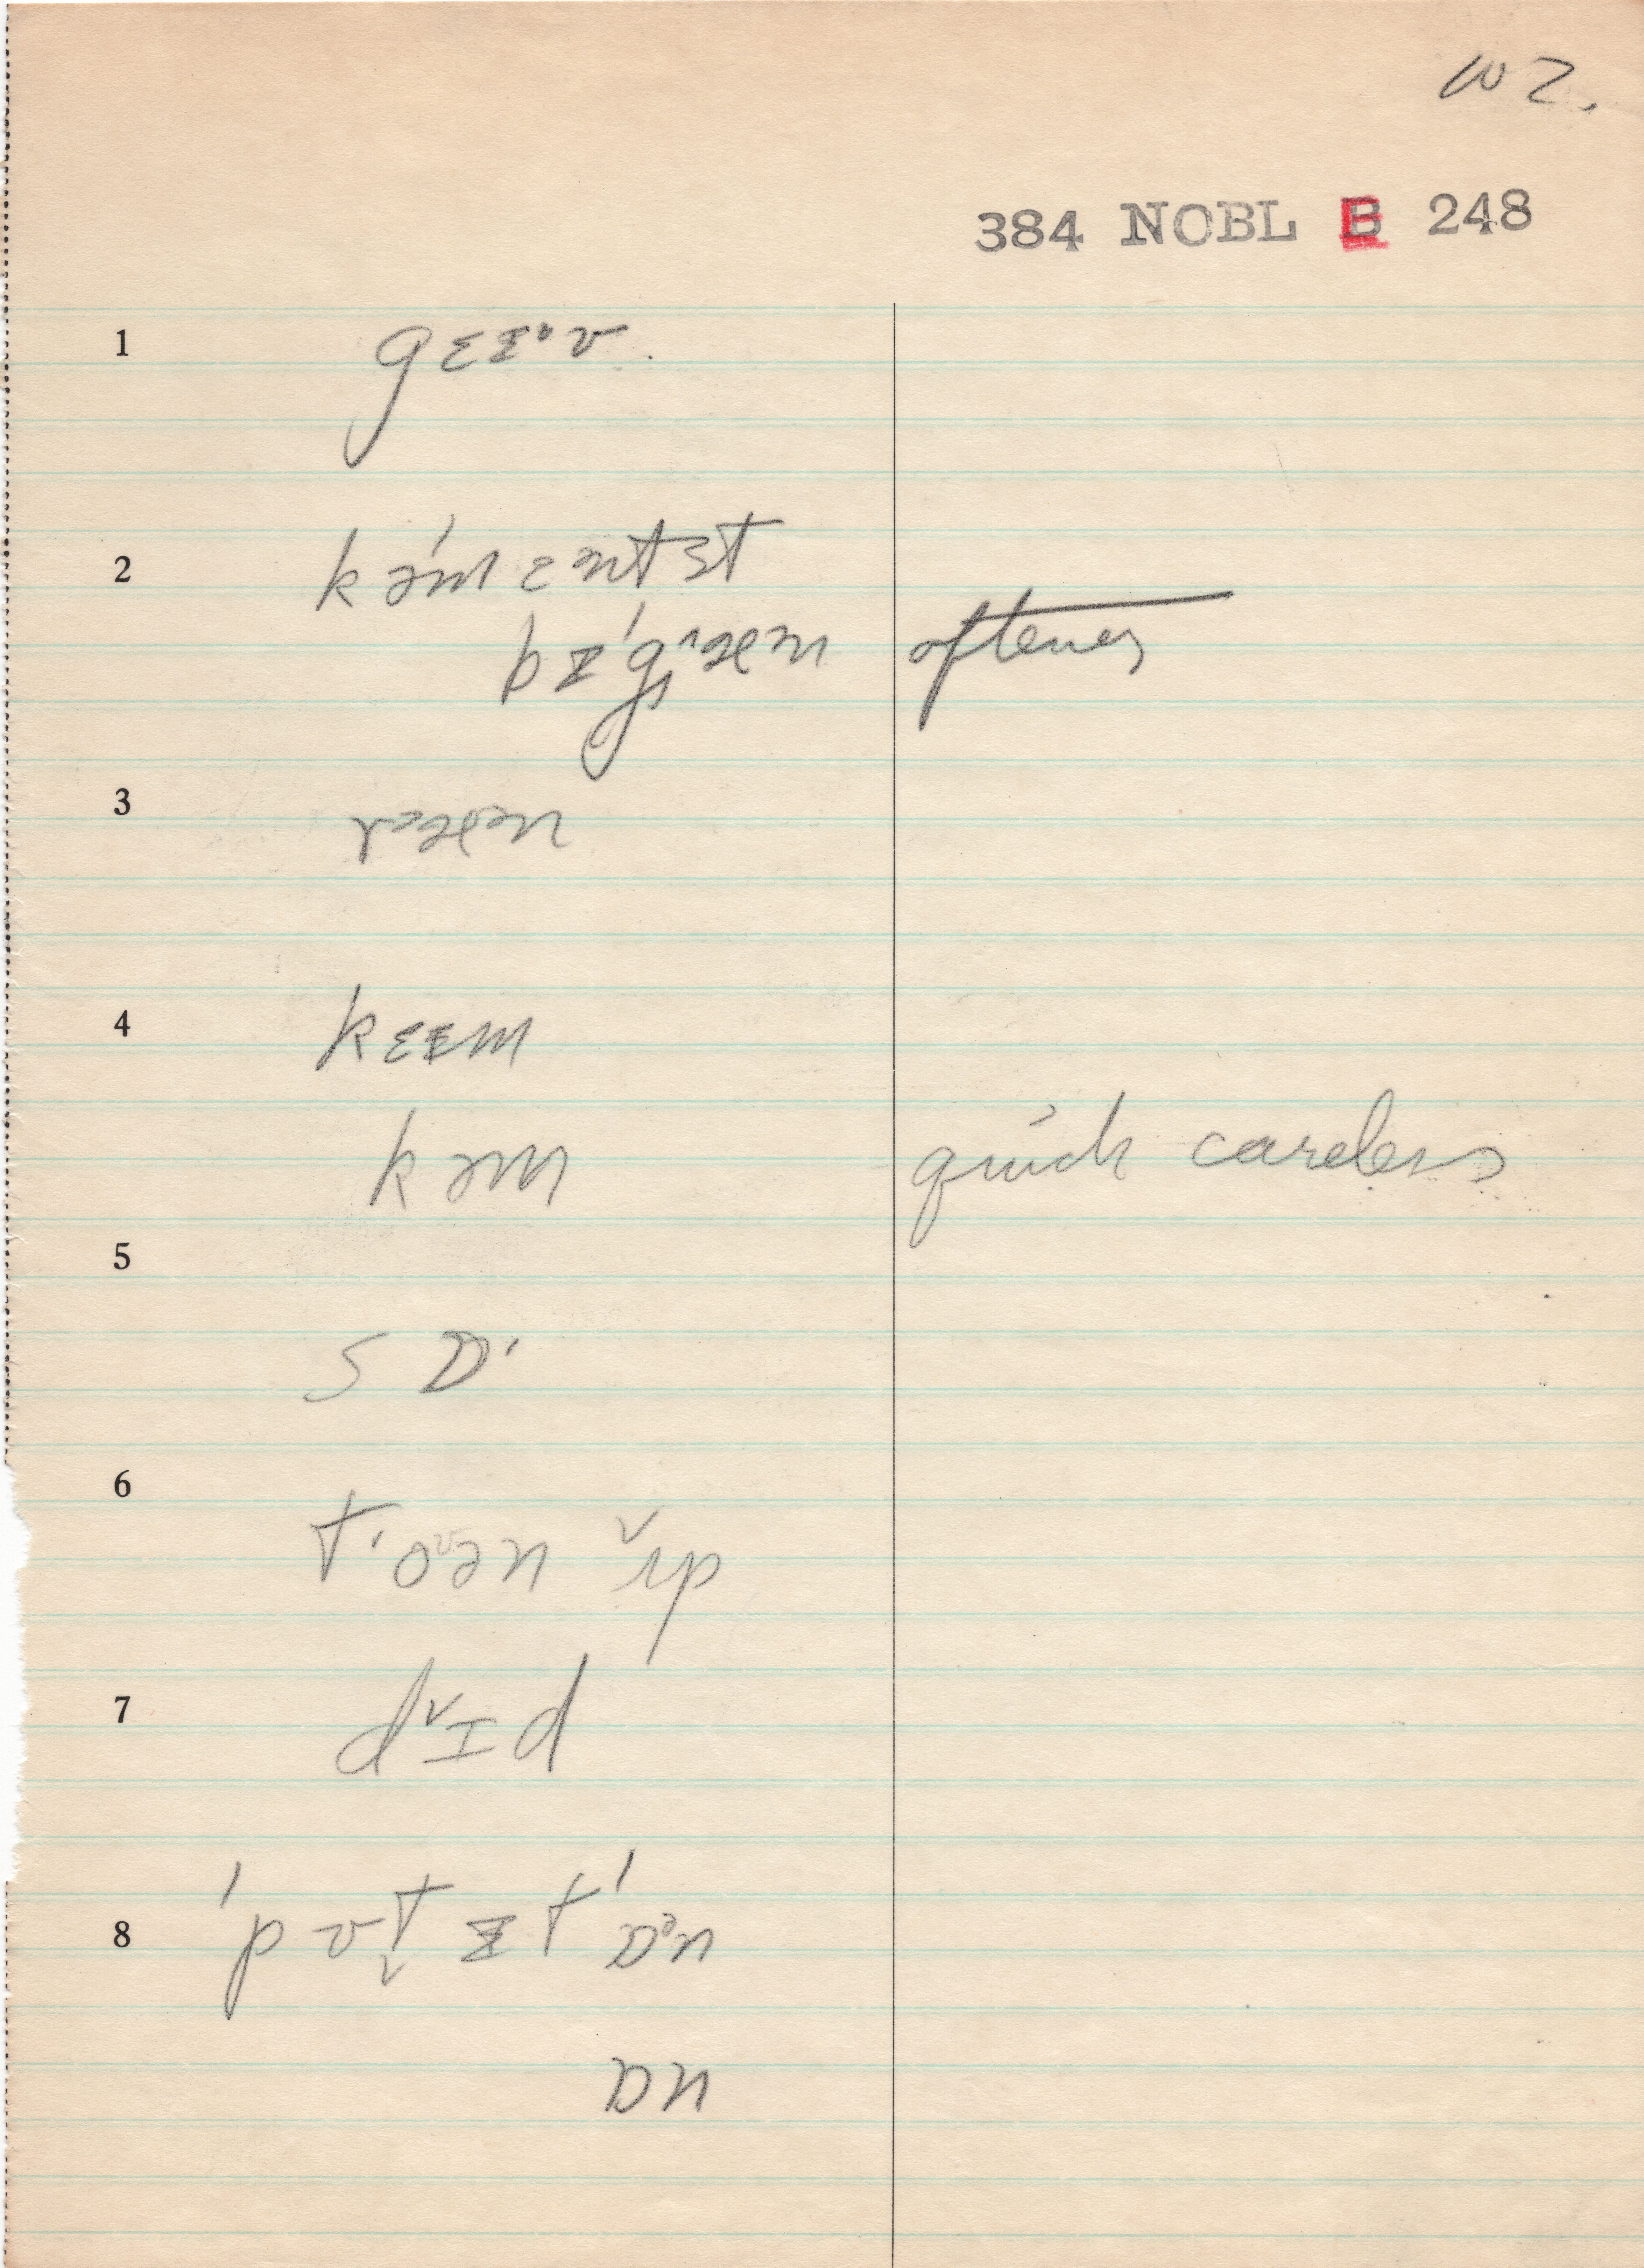 WZ.
384 NOBL B 248
1 gɛɪᵊv.
2 kəˈmɛntst
bɪˈgᴈæn oftener
3 rᵊæn
4 kɛɪm
kəm quick careless
5
sɒ·
6 t·oᶷən ˇʌp
7 dˇɪd
8 ˈpʊt̬ ɪt ˈɒᵊn
ɒn